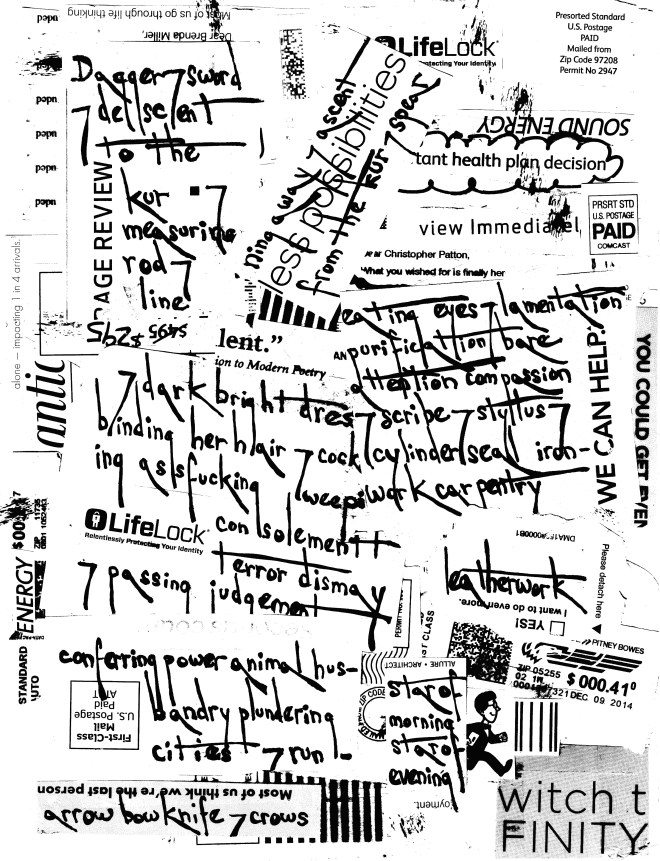 Most of us go through life thinking
Dear Brenda Miller,
LifeLock
Relentlessly Protecting Your Identity
Presorted Standard
U.S. Postage
PAID
Mailed from
Zip Code 97208
Permit No 2947
Dagger 7 sword
7 de/scent
to the
kur 7
measuring
rod 7
line
AGE REVIEW
$4.95
ning away 7 ascent
less possibilities
from the kur 7 spear
SOUND ENERGY
tant health plan decision
view Immediatel
PRSRT STD
U.S. POSTAGE
PAID
COMCAST
Christopher Patton,
What you wished for is finally her
alone — impacting 1 in 4 arrivals.
lent.”
ion to Modern Poetry
eating eyes 7 lamentation
purification bare
attention compassion
7 scribe 7 stylus 7
cock/cylinder/seal iron-
work carpentry
WE CAN HELP.
YOU COULD GET EVEN
antic
7 dark bright dres-
binding her hair
ing assfucking 7 weepi
LifeLock
Relentlessly Protecting Your Identity
consolement
terror dismay
7 passing judgement
leatherwork
Please detach here
I want to do even more.
YES!
ENERGY
STANDARD
AUTO
CLASS
ALLURE • ARCHITECT
ZIP CODE
PITNEY BOWES
ZIP 05255
02 1W
$ 000.41⁰
DEC 09 2014
conferring power animal hus-
bandry plundering
cities 7 run-
First-Class
Mail
U.S. Postage
Paid
AT&T
star of
morning
star of
evening
oyment.
Most of us think we're the last person
arrow bow knife 7 crows
witch t
FINITY